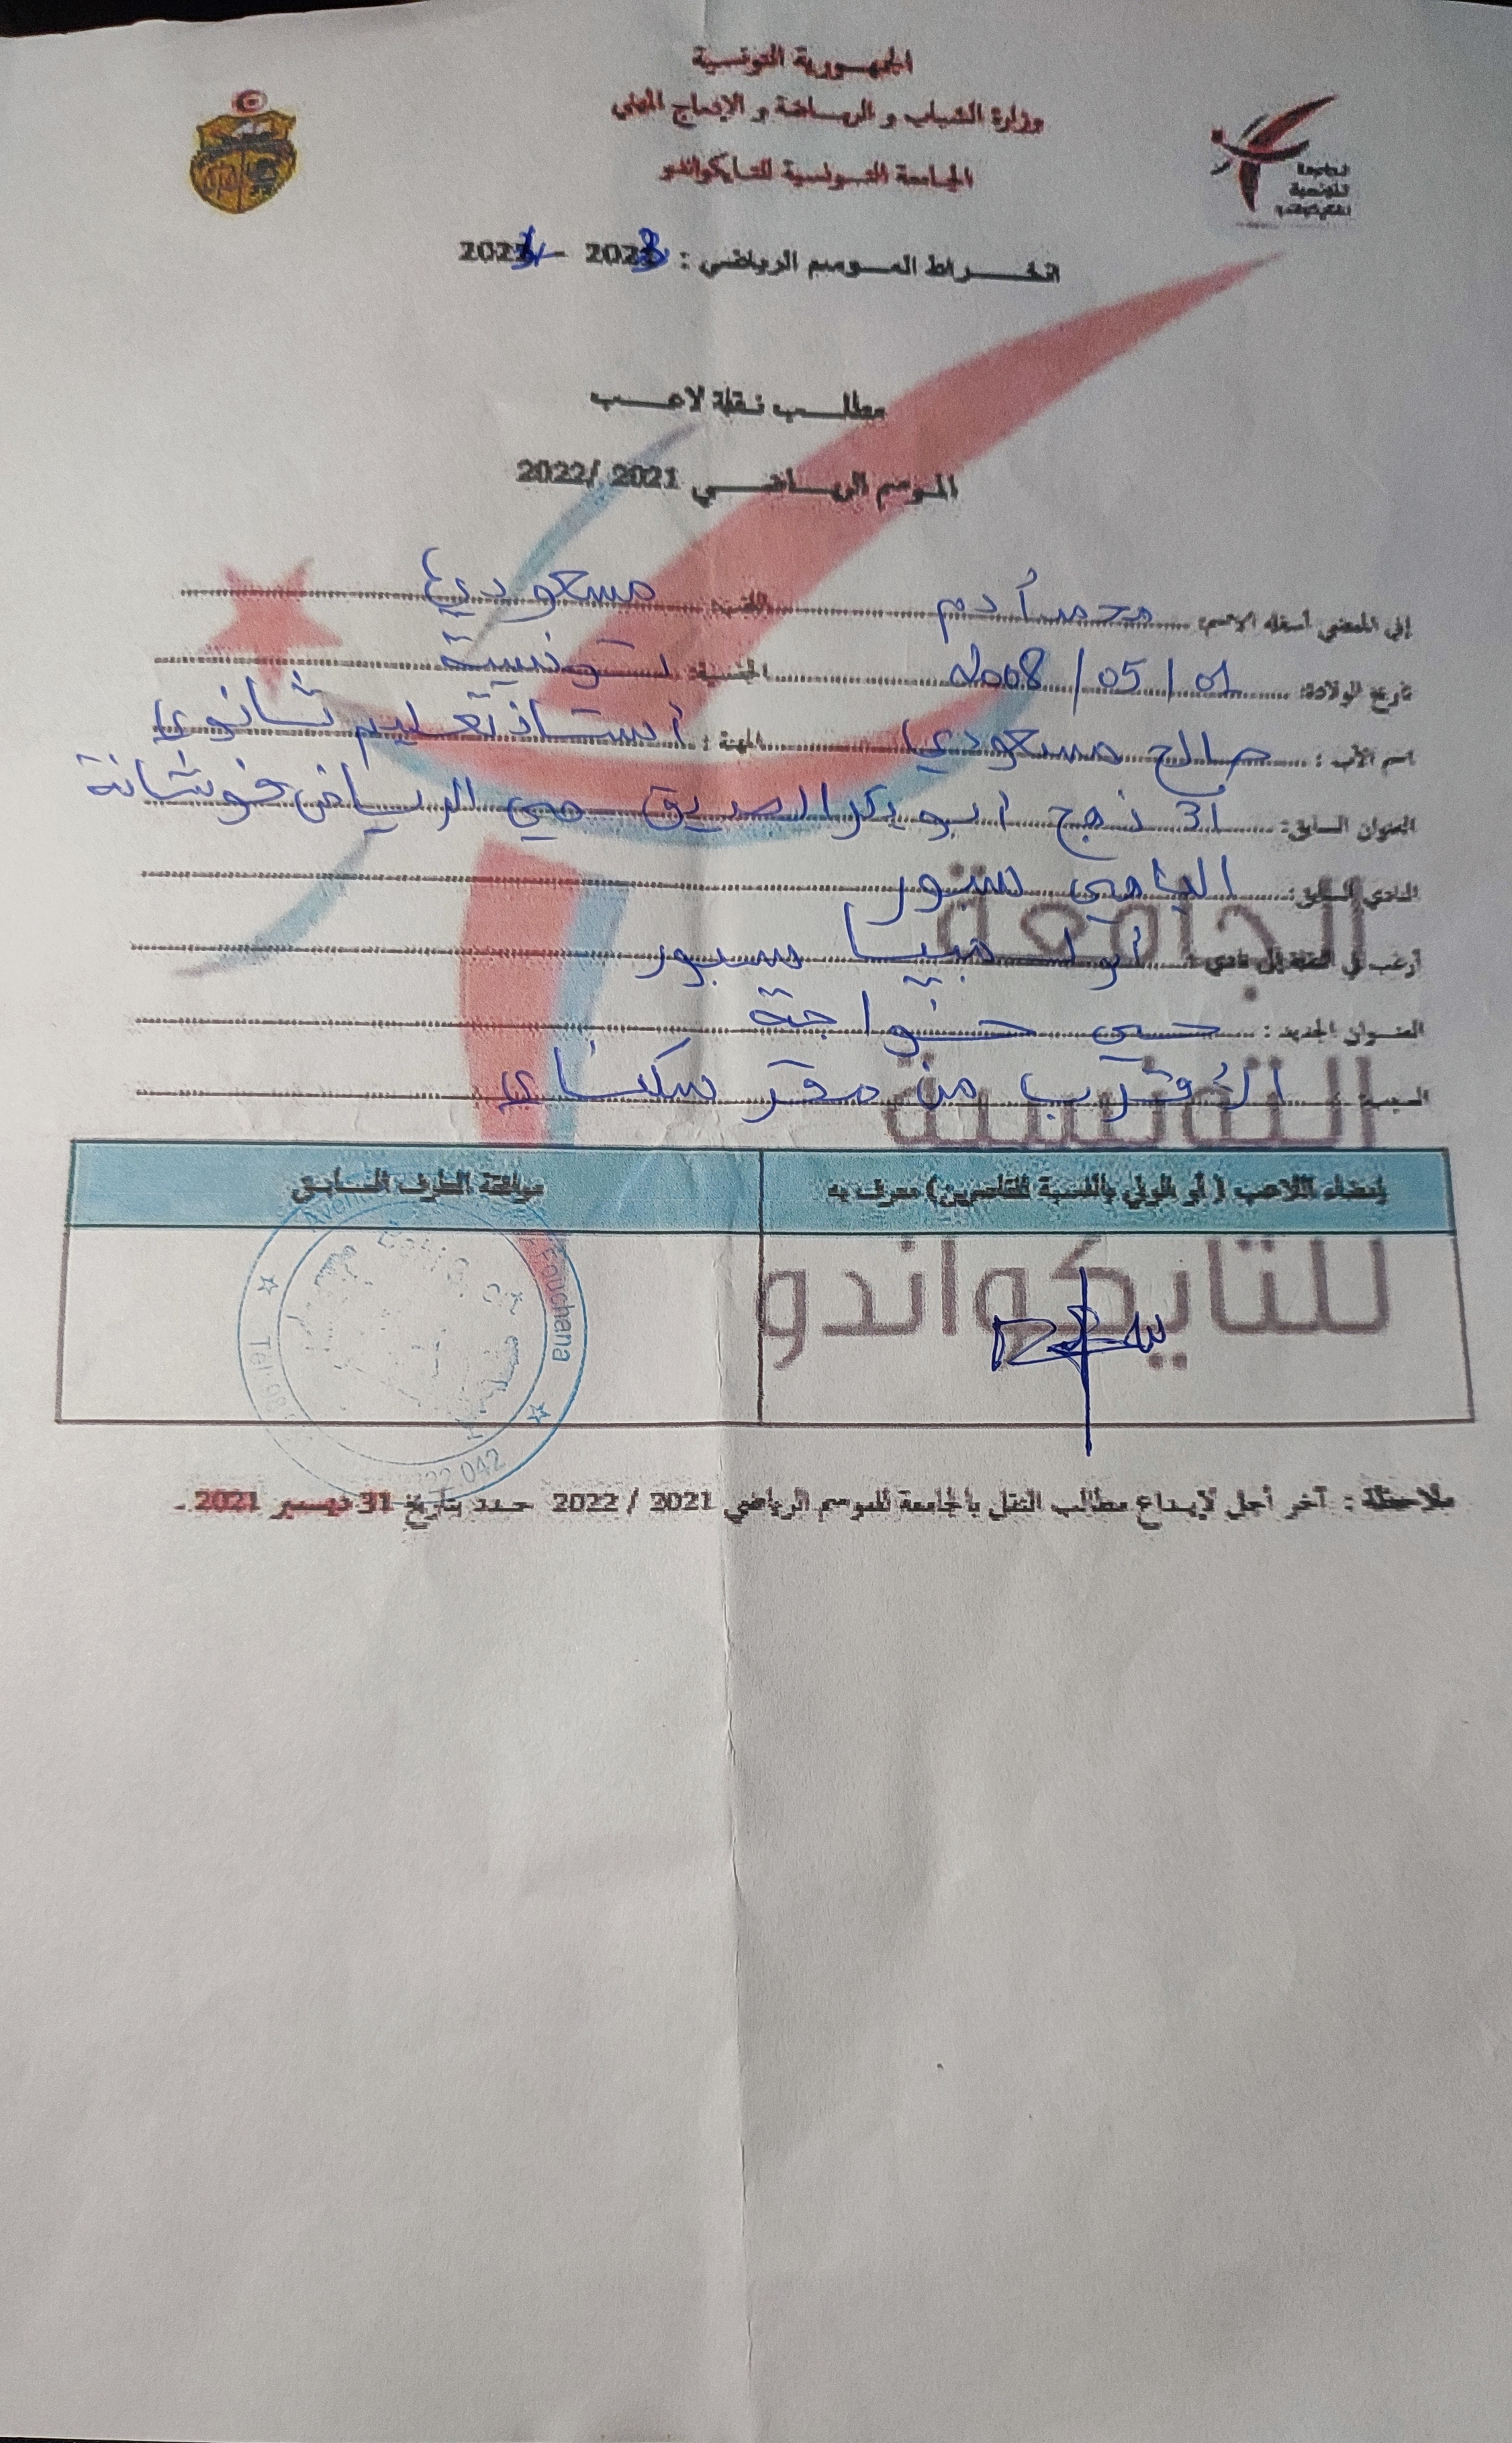 الجمهورية التونسية
وزارة الشباب و الرياضة و الإدماج المهني
الجامعة التونسية للتايكواندو
الجامعة
التونسية
للتايكواندو
انخراط الموسم الرياضي : 2023 - 2024
مطلب نقلة لاعب
الموسم الرياضي 2021 /2022
إني الممضي أسفله الاسم: محمد أدم اللقب: مسعودي
تاريخ الولادة: 01 / 05 / 2008 الجنسية: تونسية
اسم الأب : صالح مسعودي المهنة : أستاذ تعليم ثانوي
العنوان السابق: 31 نهج ابو بكر الصديق حي الرياض فوشانة
النادي السابق: الباهي سبور
أرغب في النقلة إلى نادي : أولمبيا سبور
العنوان الجديد : حي خواجة
السبب: الأقرب من مقر سكناي
إمضاء اللاعب ( أو الولي بالنسبة للقاصرين) معرف به
موافقة الطرف السابق
الجامعة
التونسية
للتايكواندو
Fouchana
Tel
042
ملاحظة : آخر أجل لإيداع مطالب النقل بالجامعة للموسم الرياضي 2021 / 2022 حدد بتاريخ 31 ديسمبر 2021 .